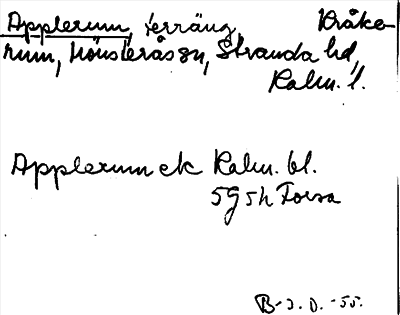 Applerum, terräng, Kråke-
rum, Mönsterås sn, Stranda hd,
Kalm. l.
Applerum ek Kalm. bl.
5G 5h Forsa
B-J. D. -55.